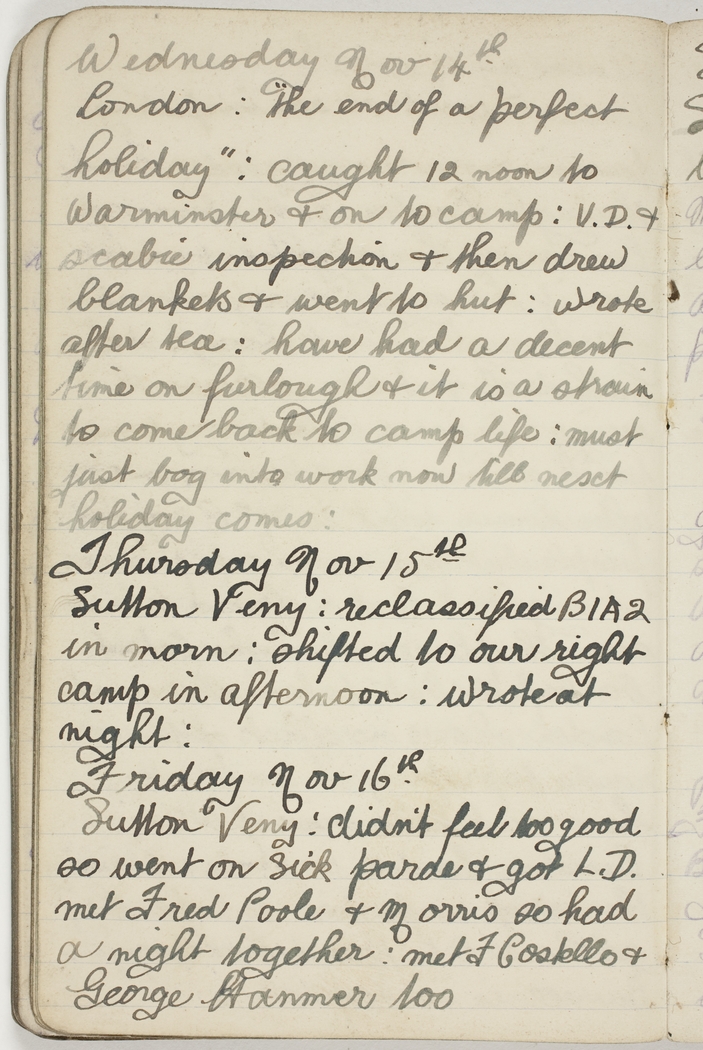 Wednesday Nov 14th
London : "The end of a perfect
holiday" : caught 12 noon to
Warminster & on to camp : V.D. &
scabie inspection & then drew
blankets & went to hut : wrote
after tea : have had a decent
time on furlough & it is a strain
to come back to camp life : must
just bog into work now till next
holiday comes :
Thursday Nov 15th
Sutton Veny : reclassified B1A2
in morn : shifted to our right
camp in afternoon : wrote at
night :
Friday Nov 16th
Sutton Veny : didn't feel too good
so went on Sick parde & got L.D.
met Fred Poole & Morris so had
a night together : met F Costello &
George Hanmer too